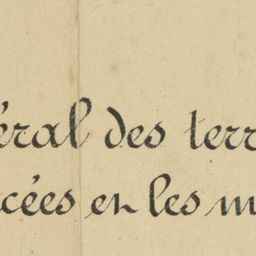 éral des terr
cées en les m